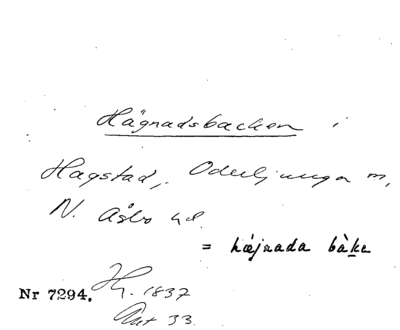 Hägnadsbacken i
Hagstad, Oderljunga m,
N. Åsbo hd.
= hæjnada bàke
Nr 7294. H. 1837
Akt 33.